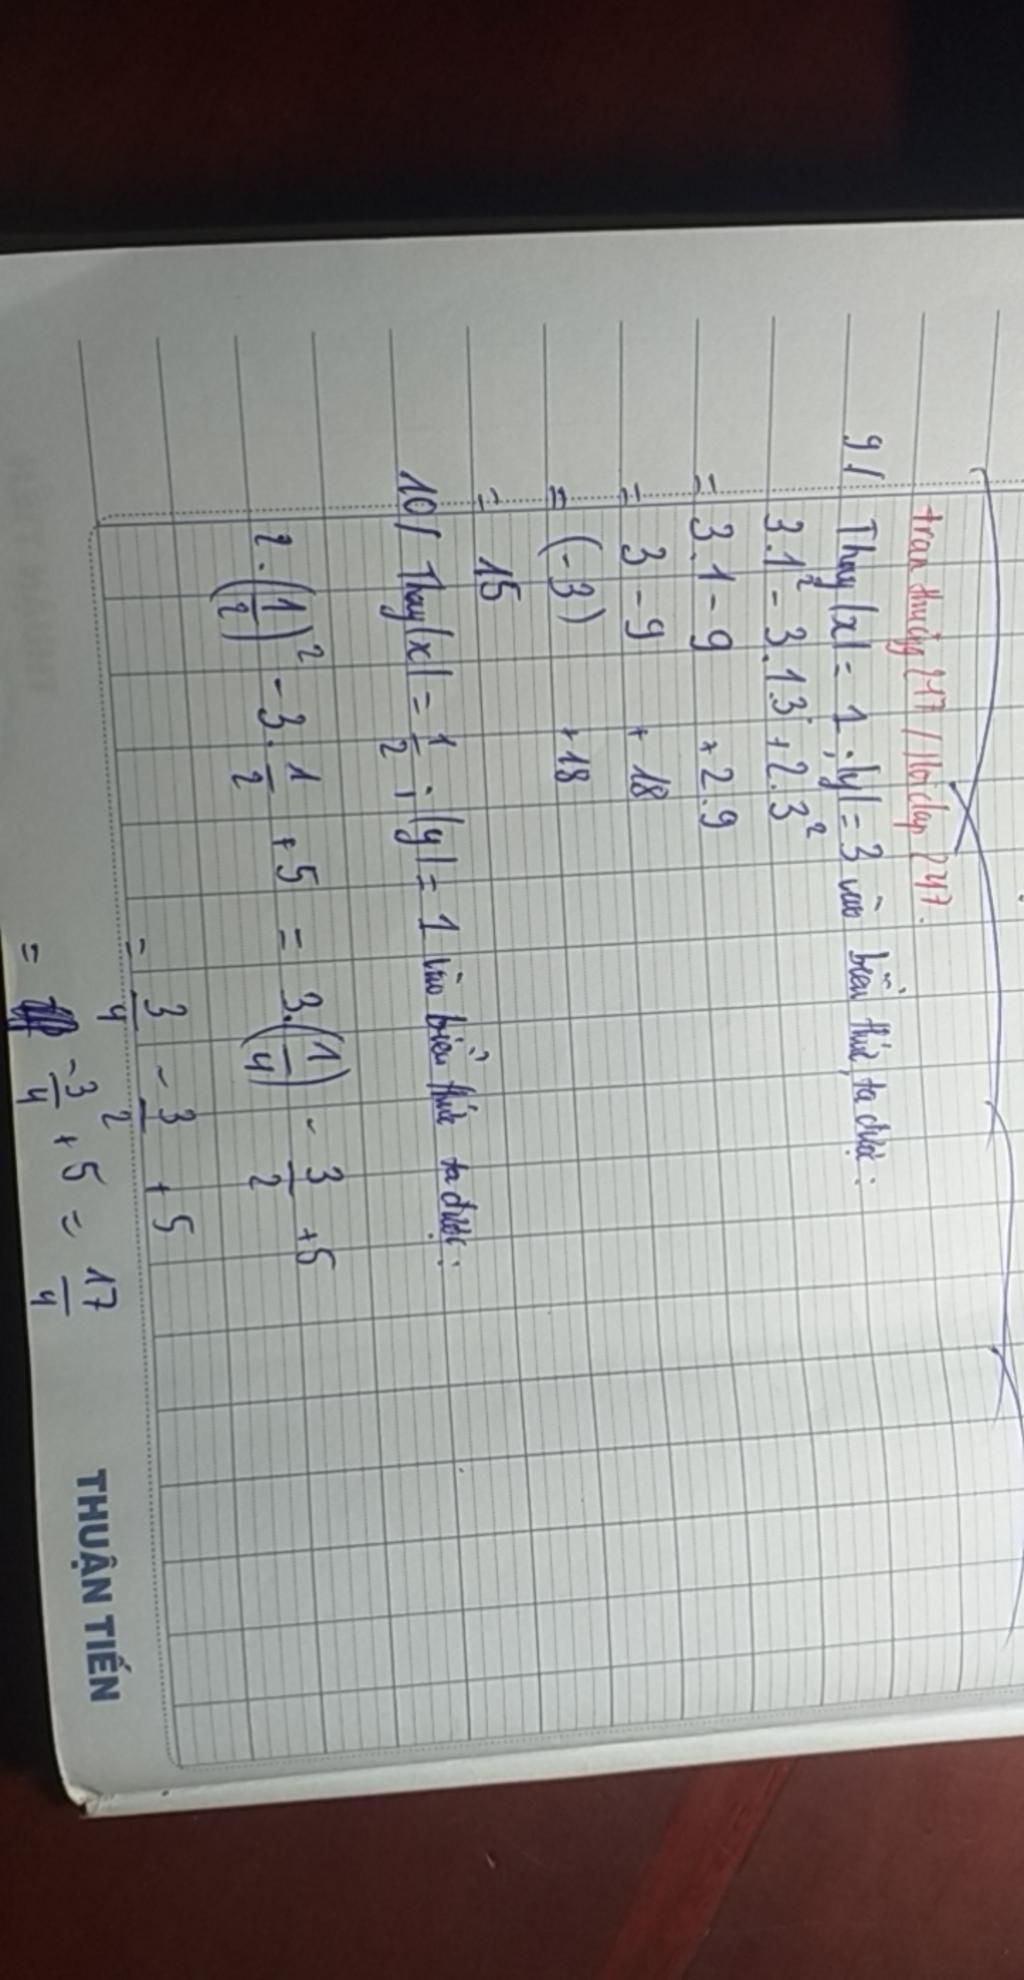 tranthuong247 / Hoidap247.
9/ Thay |x| = 1 ; |y| = 3 vào biểu thức, ta được:
3.1² - 3.1.3 + 2.3²
= 3.1 - 9 + 2.9
= 3 - 9 + 18
= (-3) + 18
= 15
10/ Thay |x| = 1/2 ; |y| = 1 vào biểu thức ta được:
2.(1/2)² - 3.1/2 + 5 = 3.(1/4) - 3/2 + 5
= 3/4 - 3/2 + 5
= -3/4 + 5 = 17/4
THUẬN TIẾN